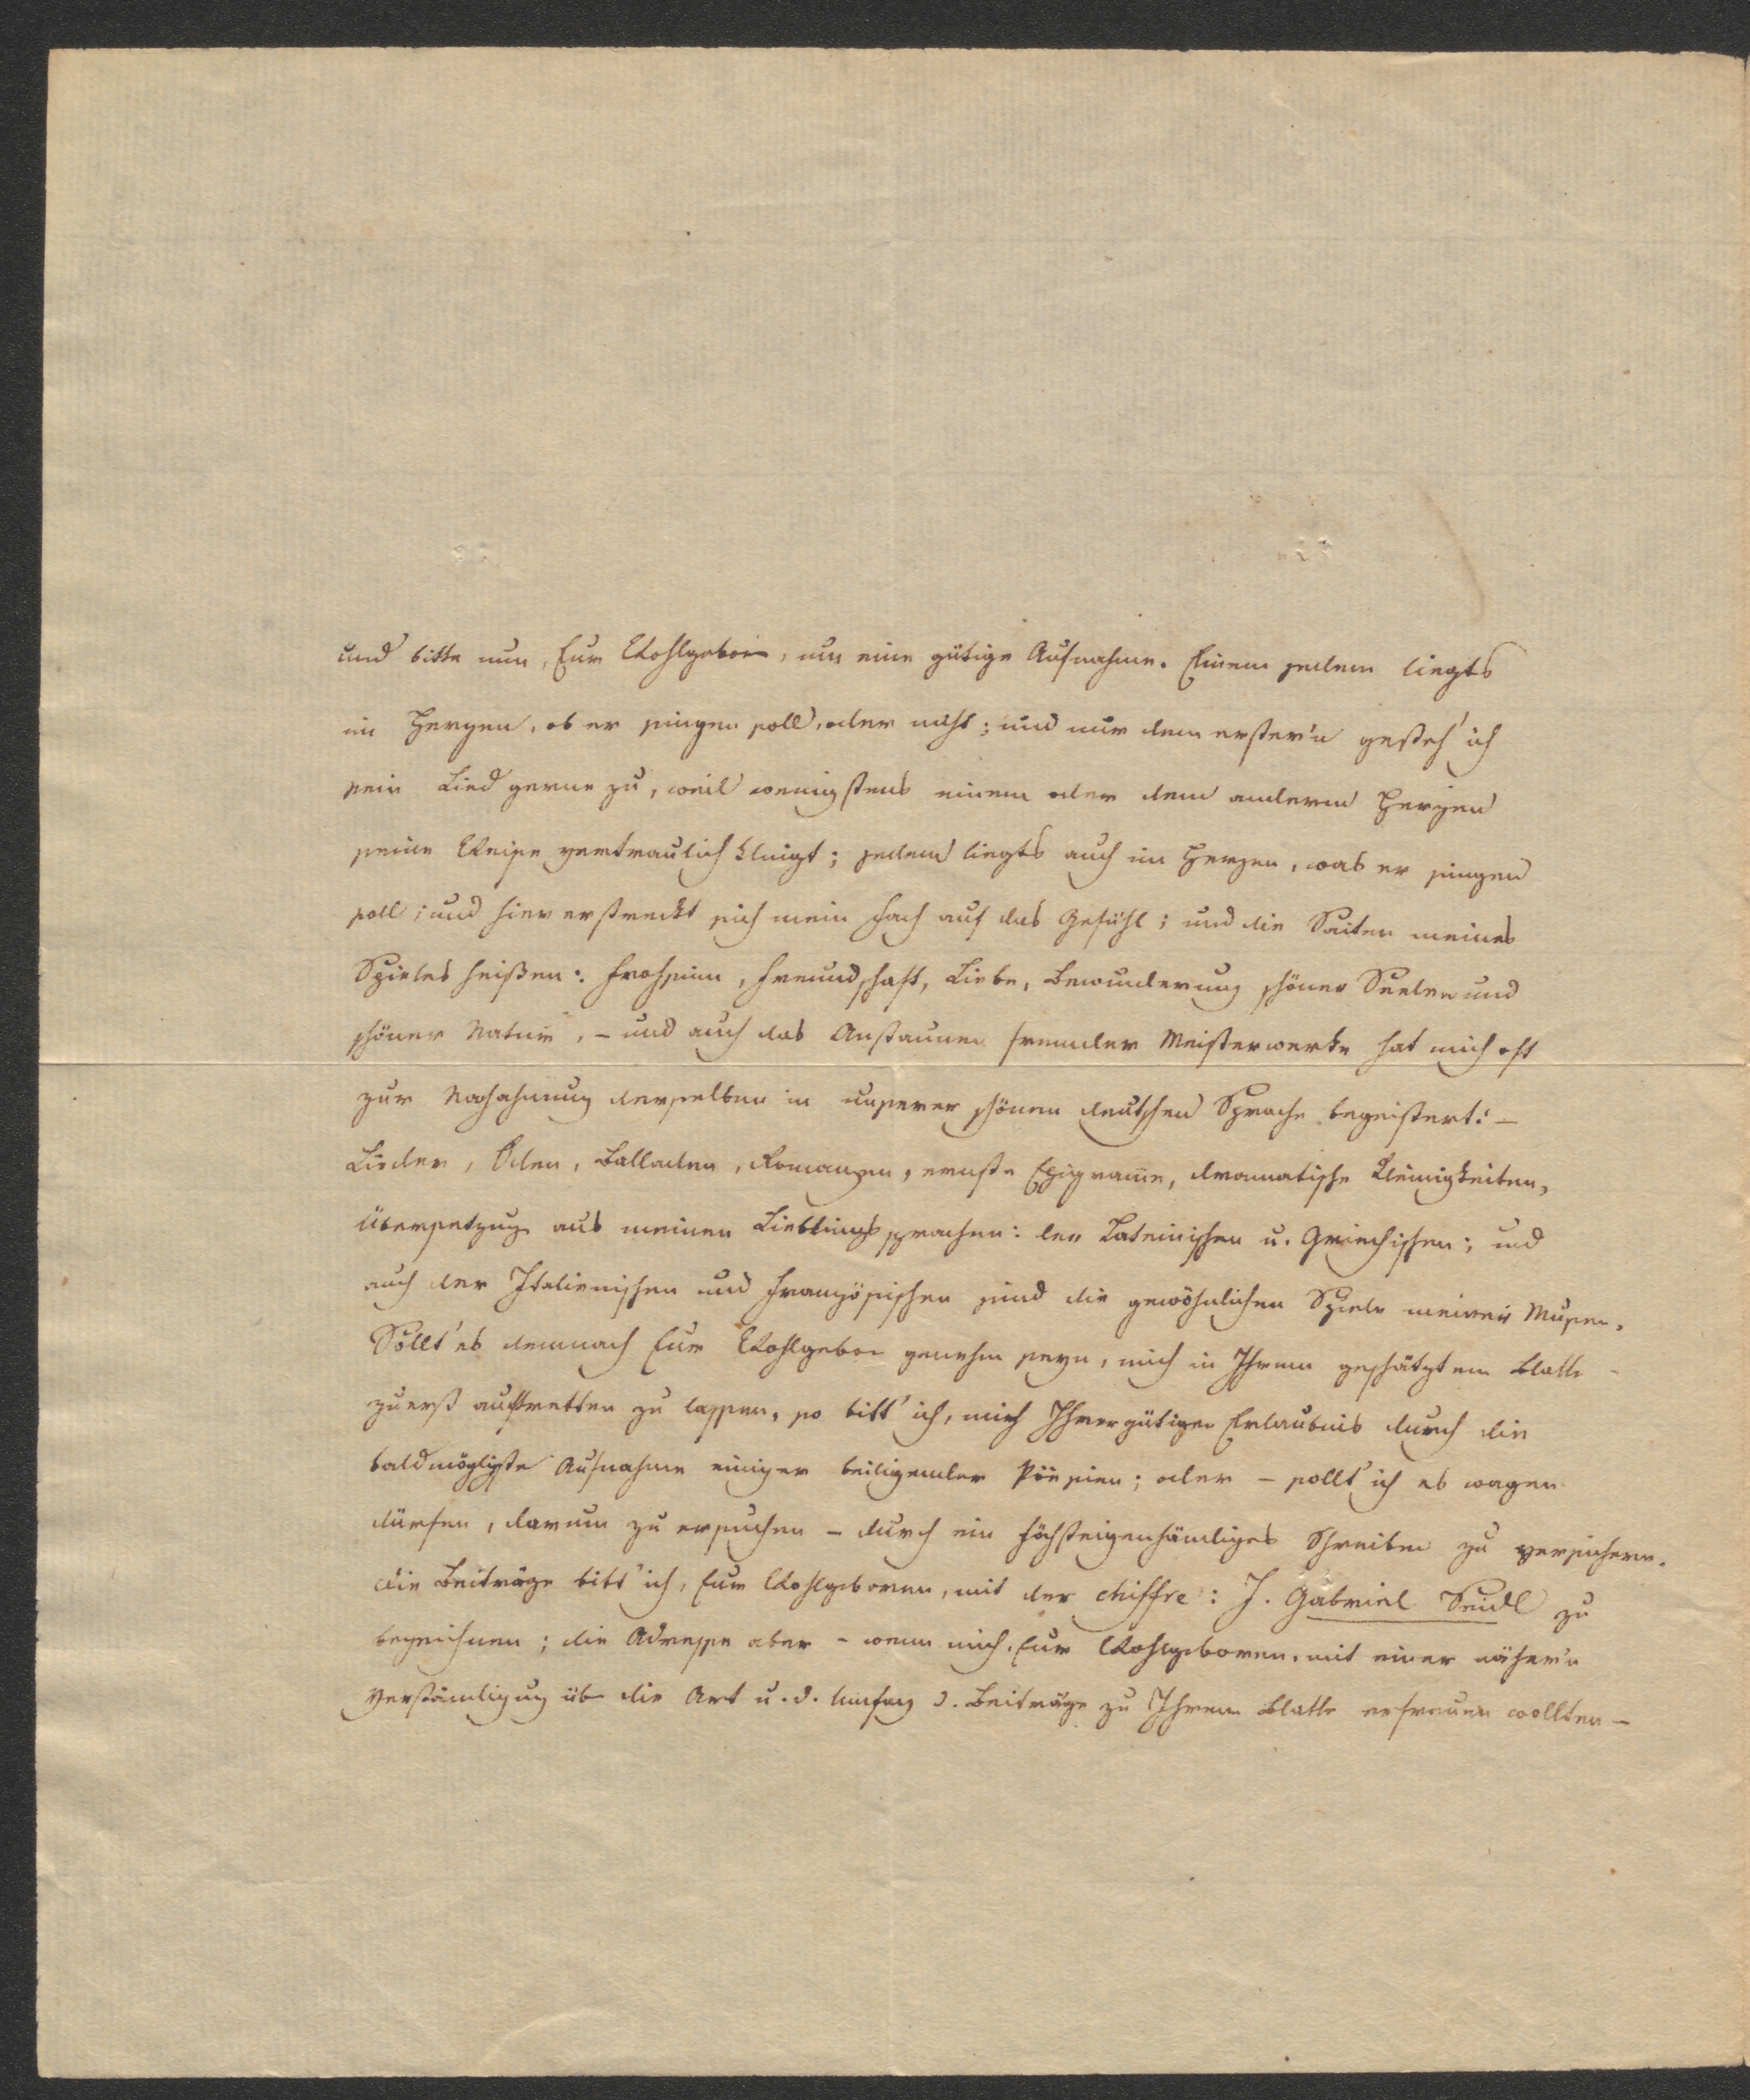 und bitte nun, Eure Wohlgeborn, um eine gütige Aufnahme. Einem jedem liegts
im Herzen, ob er singen soll, oder nicht; und nur dem erster'n gesteh' ich
sein Lied gerne zu, weil wenigstens einem oder dem anderem Herzen
seine Weise vertraulich klingt; jedem liegts auch im Herzen, was er singen
soll; und hier erstreckt sich mein Fach auf das Gefühl; und die Saiten meines
Spieles heißen: Frohsinn, Freundschaft, Liebe, Bewunderung schöner Seelen und
schöner Natur, – und auch das Anstaunen fremder Meisterwerke hat mich oft
zur Nachahmung derselben in unserer schönen deutschen Sprache begeistert: –
Lieder, Oden, Balladen, Romanzen, ernste Epigramme, dramatische Kleinigkeiten,
Übersetzung aus meinen Lieblingssprachen: der Lateinischen u. Griechischen; und
auch der Italienischen und Französischen sind die gewöhnlichen Spiele meiner Musen.
Sollt' es demnach Eure Wohlgebor genehm seyn, mich in Ihrem geschätztem Blatte
zuerst auftretten zu lassen, so bitt' ich, mich Ihrer gütigen Erlaubnis durch die
baldmöglichste Aufnahme einiger beiligender Pöesien; oder – sollt' ich es wagen
dürfen, darum zu ersuchen – durch ein höchsteigenhändiges Schreiben zu versichern.
Die Beiträge bitt' ich, Eure Wohlgeboren, mit der chiffre: J. Gabriel Seidl zu
bezeichnen; die Adresse aber – wenn mich Eure Wohlgeboren, mit einer näher'n
Verständigung üb die Art u. d. Umfang d. Beiträge zu Ihrem Blatte erfreuen wollten –